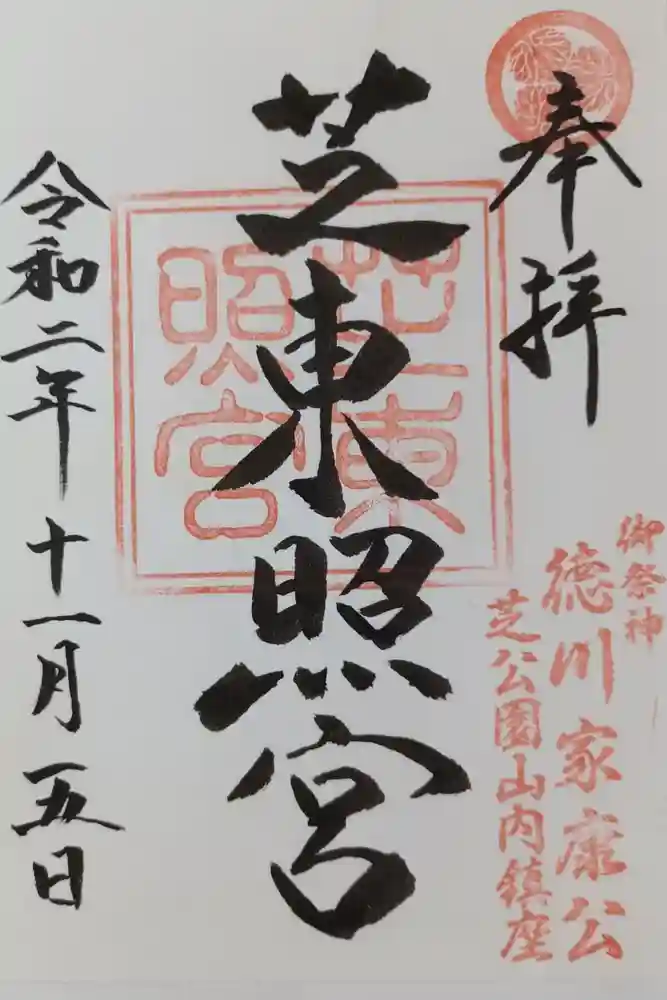 奉拝
御祭神
徳川家康公
芝公園山内鎮座
芝東照宮
芝東
照宮
令和二年十一月五日